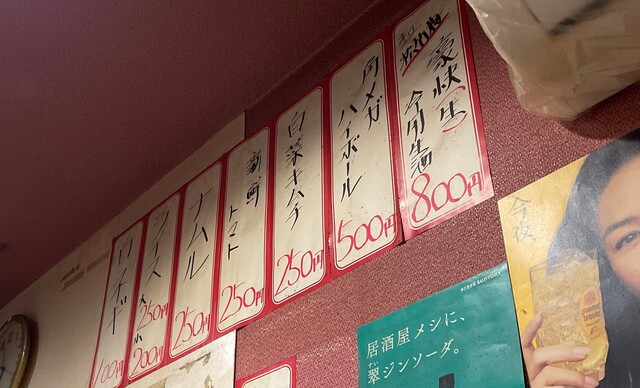 豪快(生)
今月生酒
800円
角メガ
ハイボール
500円
白菜キムチ
250円
新町
トマト
250円
ナムル
250円
ライス
大 250円
小 200円
100円
水と生きる SUNTORY
居酒屋メシに、
翠ジンソーダ。
すい
今夜、